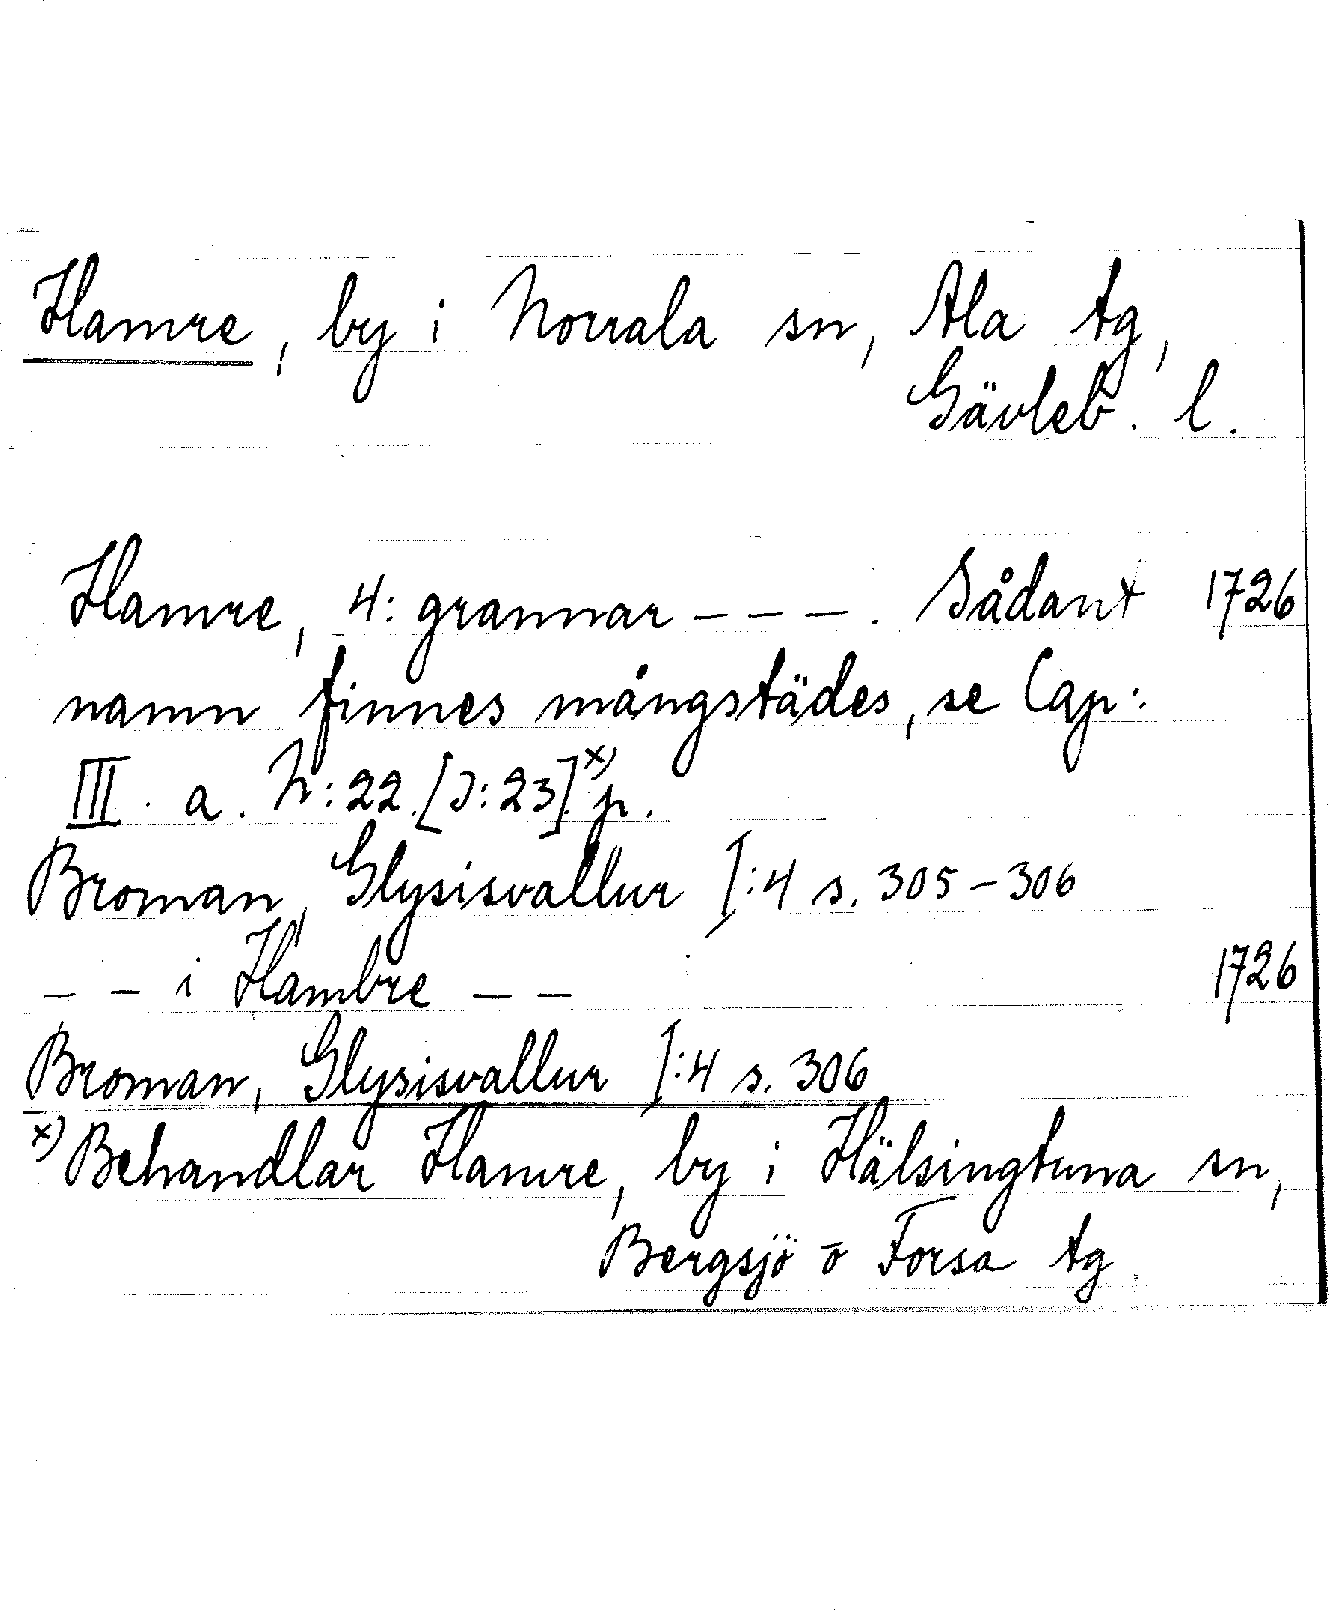 Hamre, by i Norrala sn, Ala tg,
Gävleb. l.
Hamre, 4: grannar – – – . Sådant 1726
namn finnes mångstädes, se Cap:
III. a. N: 22. [I: 23]. x) p.
Broman, Glysisvallur I:4 s. 305–306
– – i Hambre – – 1726
Broman, Glysisvallur I:4 s. 306
x) Behandlar Hamre, by i Hälsingtuna sn,
Bergsjö o Forsa tg.